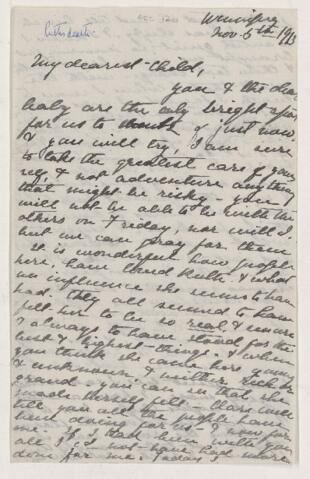 Winnipeg
Nov. 5th 1913
My dearest Child,
you & the dear
baby are the only bright spot
for us to think of just now
& you will try, I am sure
to take the greatest care of your
self, & not adventure anything
that might be risky - you
will not be able to be with the
others on Friday, nor will I.
but we can pray for them
It is wonderful how people
here, have loved Ruth. & what
an influence she seems to have
had. they all seemed to have
felt her to be so real, & sincere
& always to have stood for the
best & highest things. & when
you think she came here young
& unknown, & neither rich or
grand - you can see that she
made herself felt -
tell you all the people have
been doing for us - & now for
me. If I had been with you
all I could not have had more
done for me. Today I